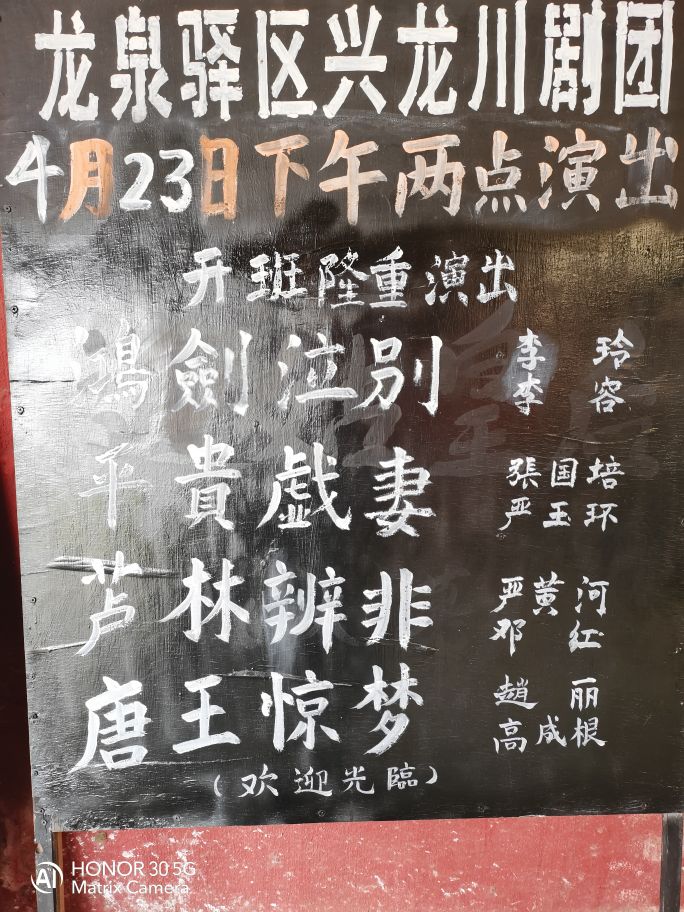 龙泉驿区兴龙川剧团
4月23日下午两点演出
开班隆重演出
鴻劍泣别 李玲
李容
平貴戯妻 張国培
严玉环
芦林辨非 严黄河
邓红
唐王惊梦 趙丽
高成根
(欢迎光臨)
HONOR 30 5G
Matrix Camera
AI